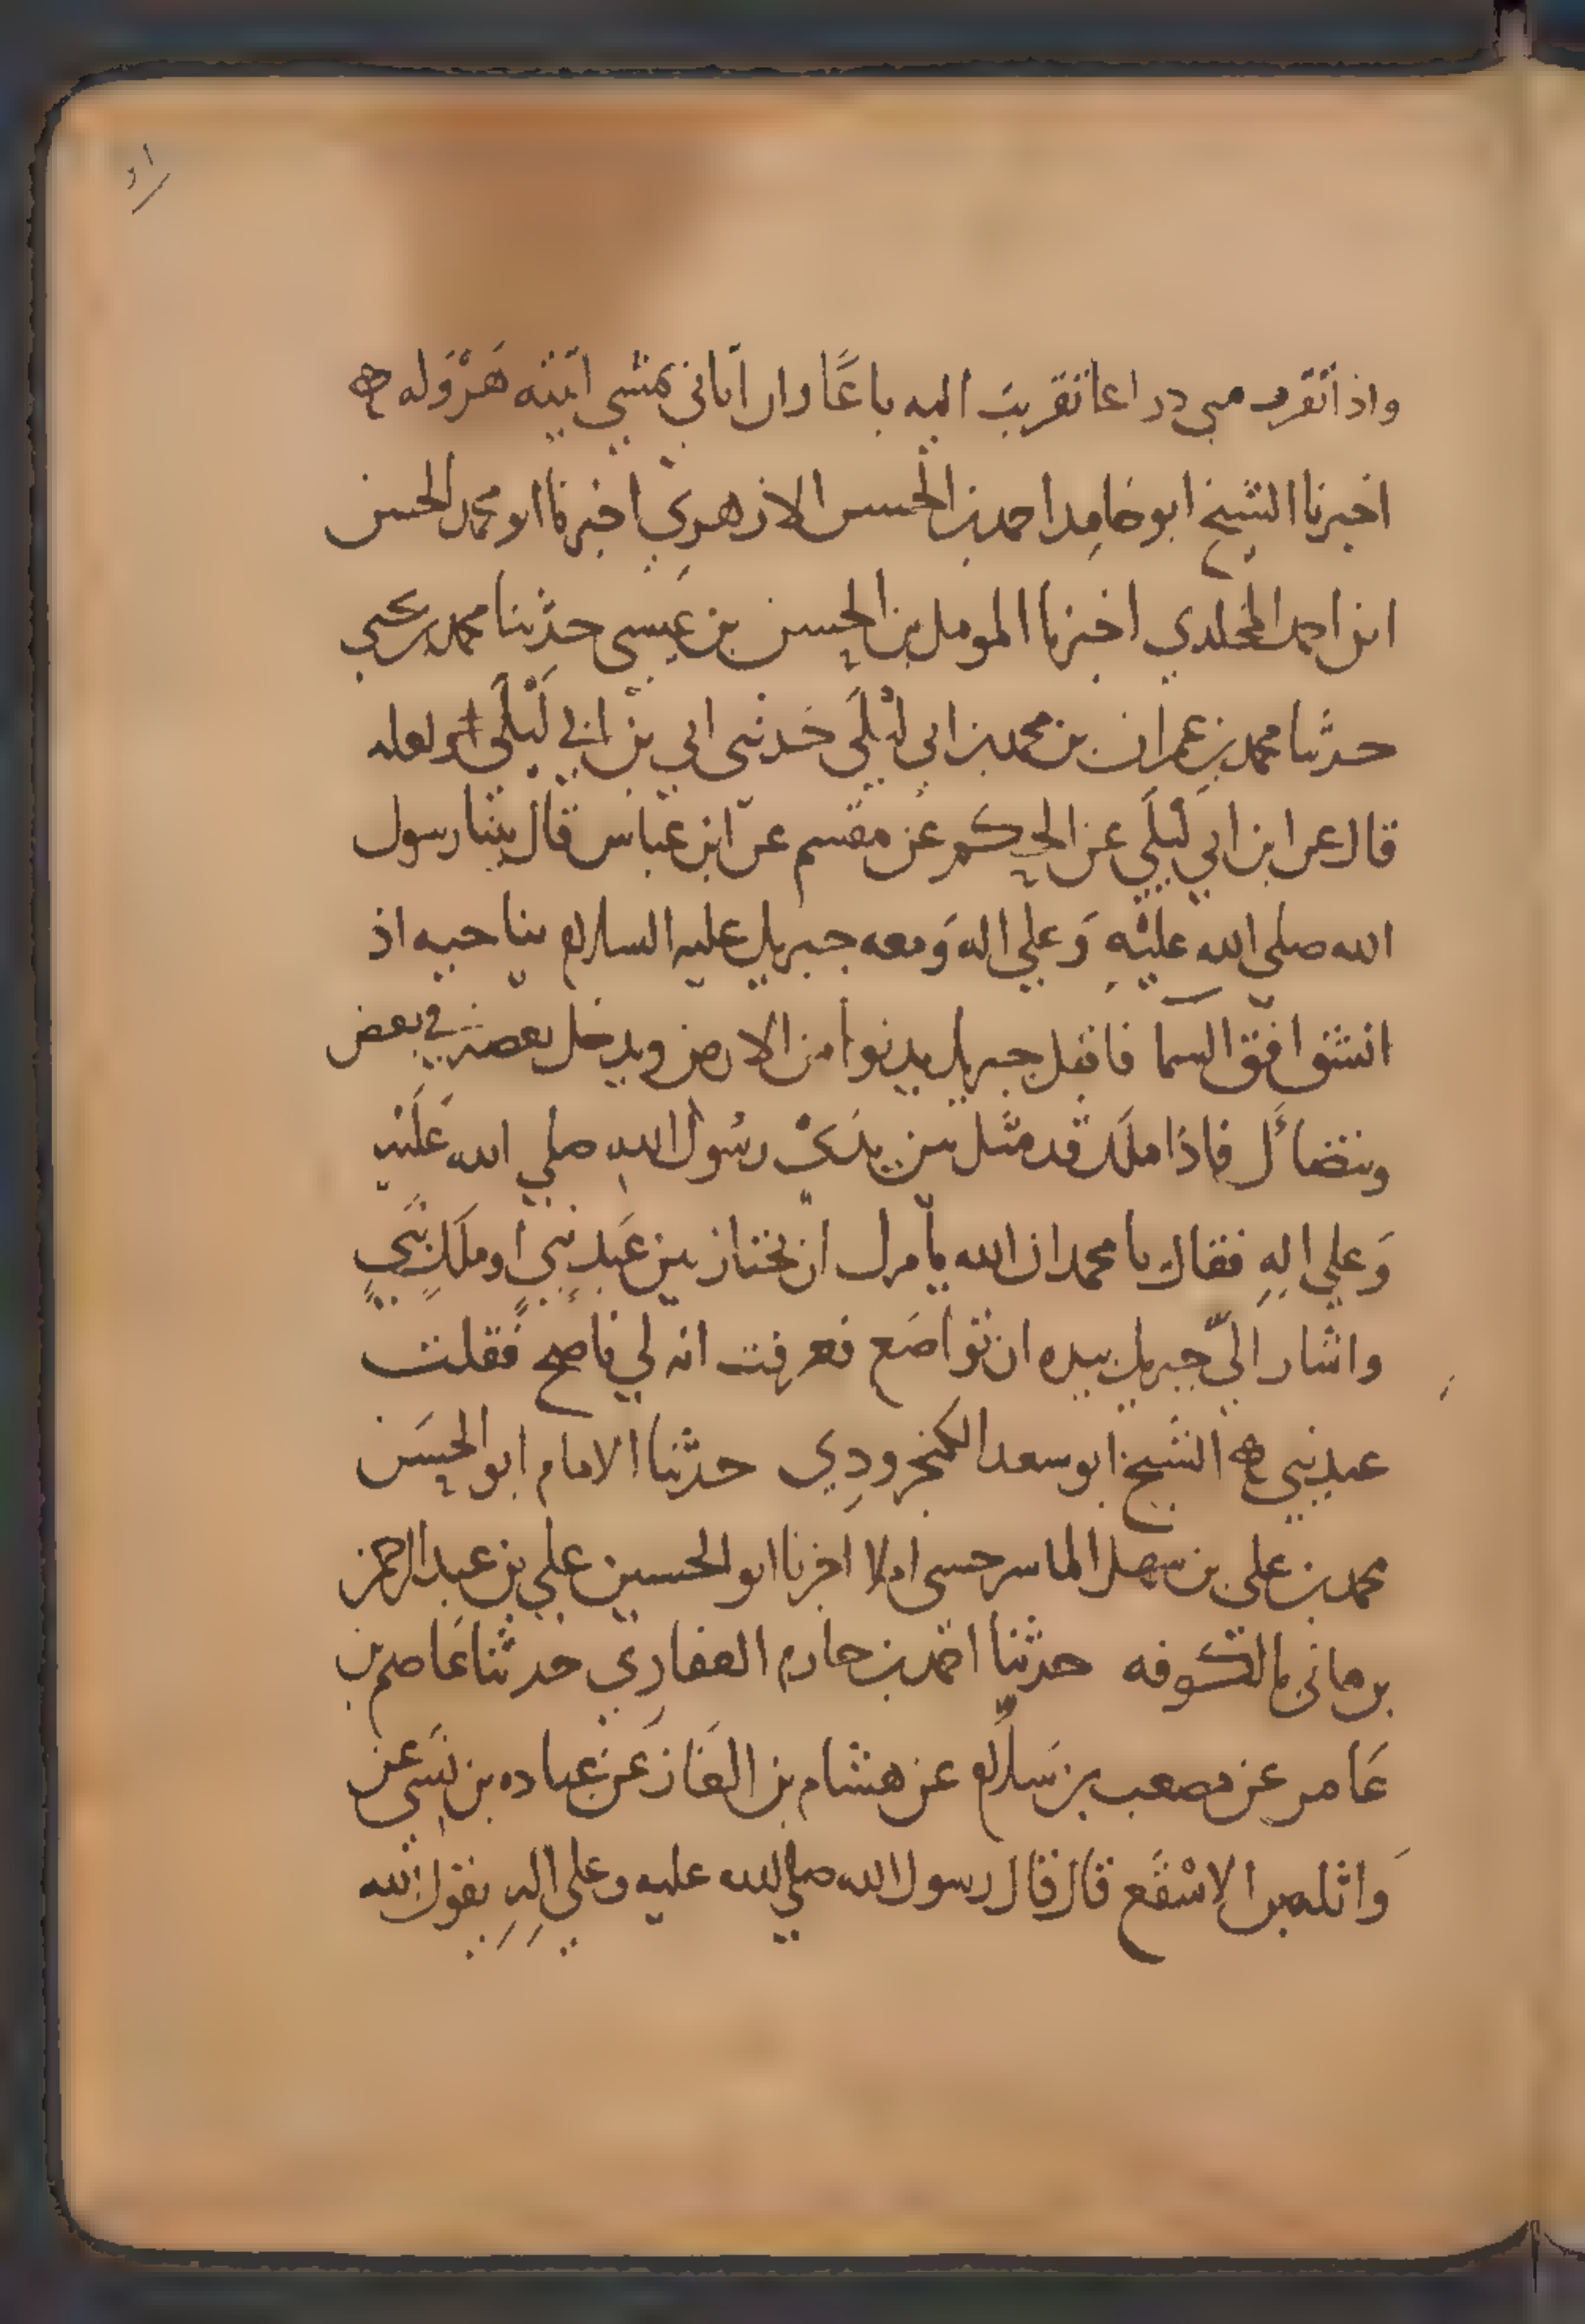 واذا تقرب مني دراعا تقربت اليه باعًا وان اتاني يمشي اتيته هَرْوَله ه
اخبرنا الشيخ ابو حامِد احمد بن الحسن الازهرِي اخبرنا ابو محمد الحسن
ابن احمد المخلدي اخبرنا المومل بن الحسن بن عيسى حدثنا محمد بن يحيى
حدثنا محمد بن عمران بن محمد بن ابي ليْلَي حَدثني ابي بن ابي لَيْلَي او لعله
قال عن ابن ابي ليْلَي عن الحكم عن مقسم عن ابن عباس قال بينا رسول
الله صلى الله عليْهِ وَعلي اله وَمعه جبريل عليه السلام يناجيه اذ
انشق افق السما فاقبل جبريل يدنوا من الارض ويدخل بعضه في بعض
ويتضاءَل فاذا ملَك قد مثل بين يدَيْ رسُول اللهِ صلي الله عَلَيْه
وَعلي الِهِ فقال يا محمد ان الله يأمرك ان تختار بين عَبدٍ نبيٍ او ملَكٍ نبَيٍ
واشار اليّ جبريل بيده ان تواضَع فعرفت انه لي ناصح فَقلت
عبدٍ نبي ه الشيخ ابو سعد الكنجرودِي حدثنا الامام ابو الحسَن
محمد بن علي بن سهل الماسرجسي املا اخبرنا ابو الحسين علي بن عبد الرحمن
بن ماتى بالكوفه حدثنا احمد بن حازم الغفارِي حدثنا عَاصم بن
عَامر عن مصعب بن سَلَّام عن هشام بن الغَاز عَن عباده بن نسَي عن
وَاثله بن الاسْقَع قال قال رسول الله صلي الله عليه وعلي الِهِ يقول الله